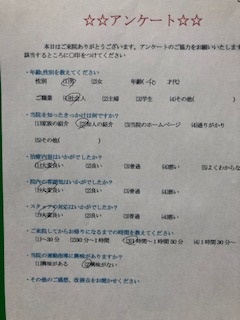 ☆☆アンケート☆☆
本日はご来院ありがとうございます。アンケートのご協力をお願いいたします
該当するところに〇印をつけてください
・年齢、性別を教えてください
(1)男 (2)女 年齢( 才代)
ご職業 (1)社会人 (2)主婦 (3)学生 (4)その他(
・当院を知ったきっかけは何ですか?
(1)家族の紹介 (2)知人の紹介 (3)当院のホームページ (4)通りがかり
(5)その他( )
・治療内容はいかがでしたか?
(1)大変良い (2)良い (3)普通 (4)悪い (5)よくわからな
・院内の雰囲気はいかがでしたか?
(1)大変良い (2)良い (3)普通 (4)悪い
・スタッフの対応はいかがでしたか?
(1)大変良い (2)良い (3)普通 (4)悪い
・ご来院してからお帰りになるまでの時間を教えてください
(1)～30分 (2)30分～1時間 (3)1時間～1時間30分 (4)1時間30分～
・当院の運動指導に興味がありますか?
(1)興味がある (2)興味がない
・その他のご感想、改善点をお聞かせください